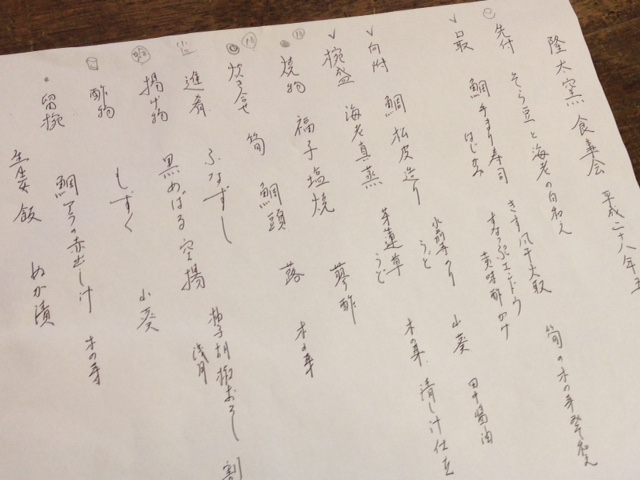 隆太窯 食事会 平成二十八年五
先付 そら豆と海老の白和え 筍の木の芽和え
鯛手まり寿司 きす風干
はじかみ すなっぷエンドウ 黄味酢かけ
向附 鯛松皮造り 山葵 醤油
うど
椀盛 海老真蒸 うど 木の芽 清し汁仕立
焼物 福子塩焼 蓼酢
炊き合せ 筍 鯛頭 蕗 木の芽
進肴 ふなずし
揚げ物 黒めばる空揚 柚子胡椒おろし 割
浅月
酢物 もずく 山葵
留椀 鯛アラの赤出し汁 木の芽
生姜飯 ぬか漬